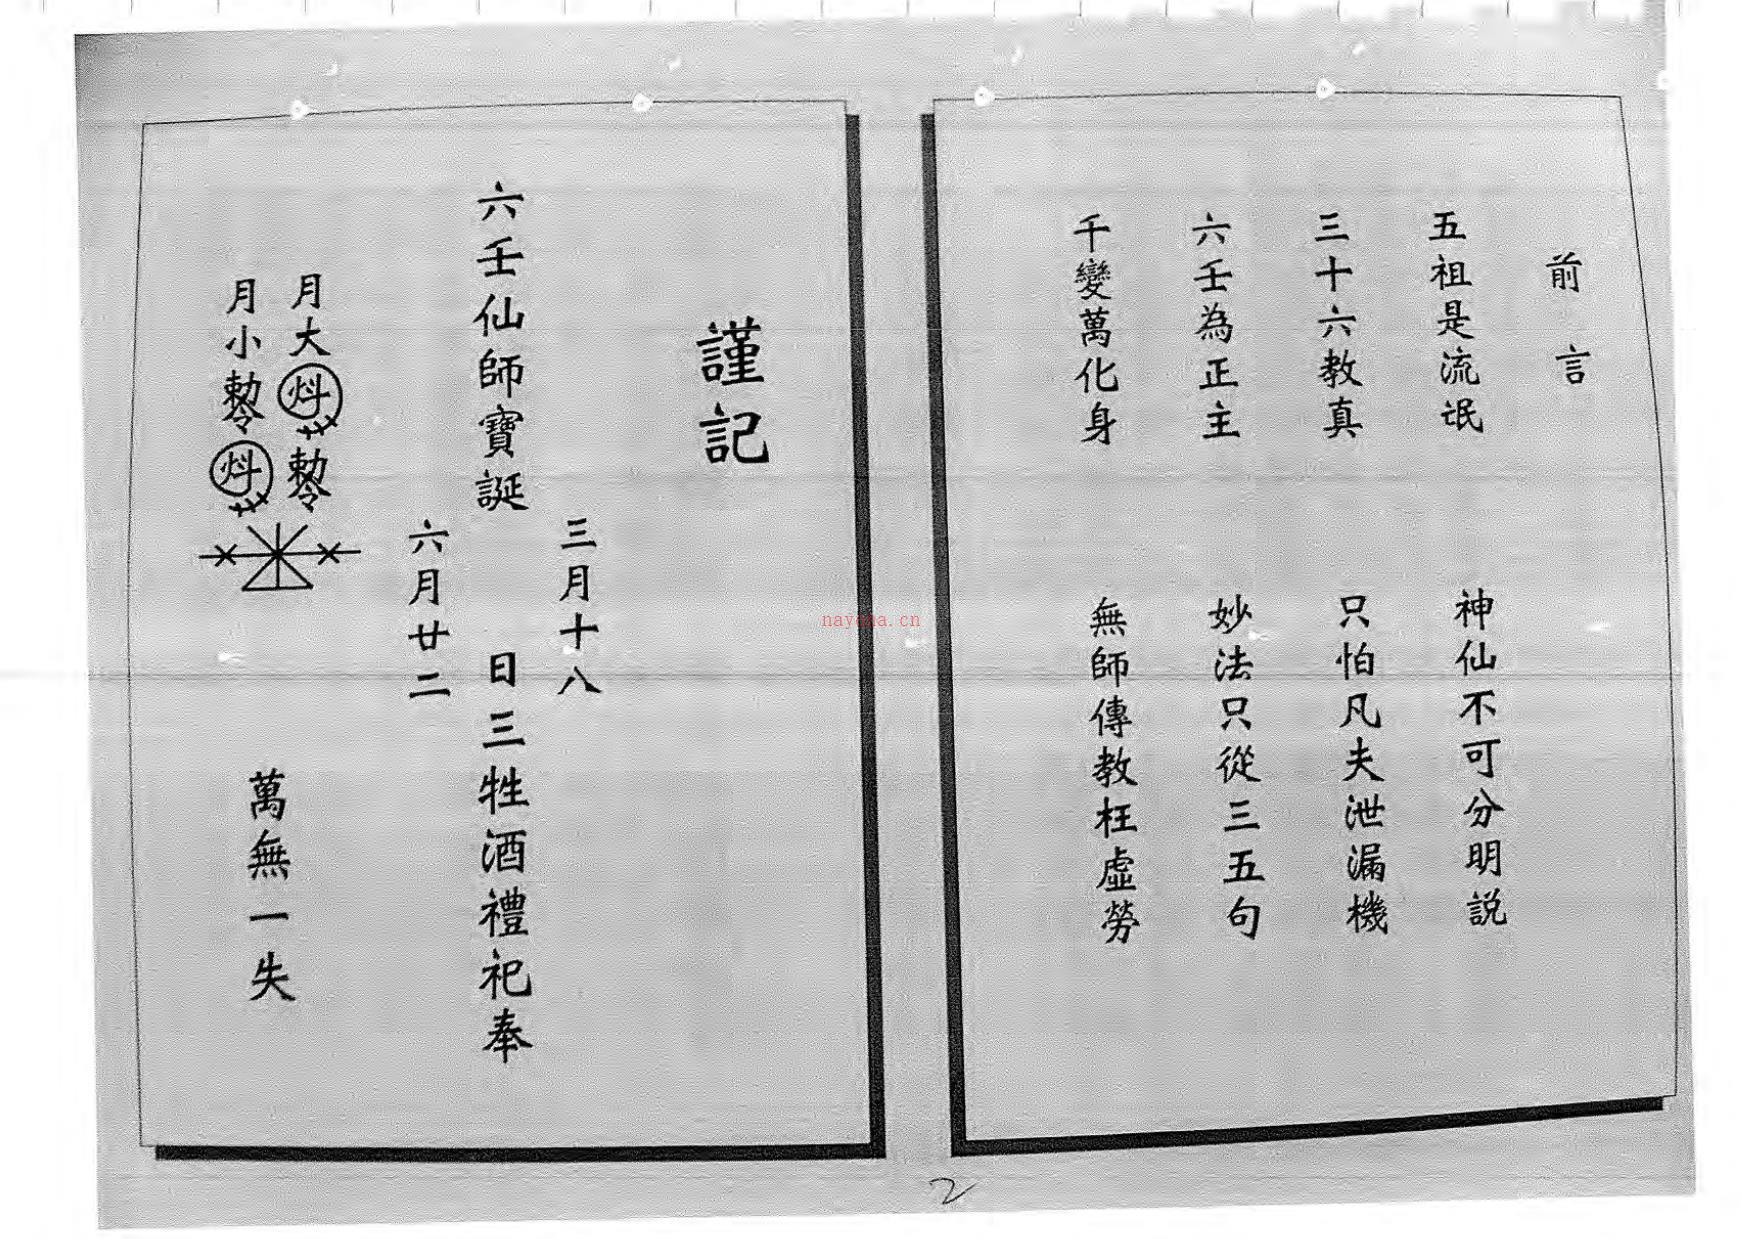 前言
五祖是流氓 神仙不可分明説
三十六教真 只怕凡夫泄漏機
六壬為正主 妙法只從三五句
千變萬化身 無師傳教枉虛勞
謹記
三月十八
六壬仙師寶誕 日三牲酒禮祀奉
六月廿二
月大
月小
萬無一失
nayona.cn
2